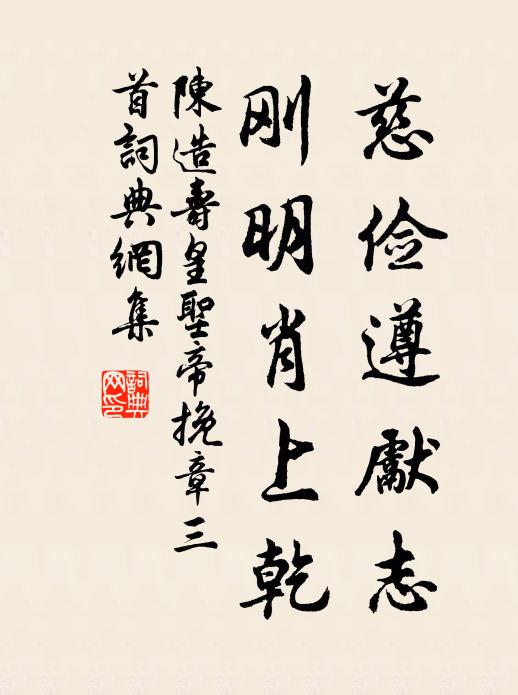 慈俭遵献志
刚明肖上乾
陳造壽皇聖帝挽章三
首詞典網集
詞典网印